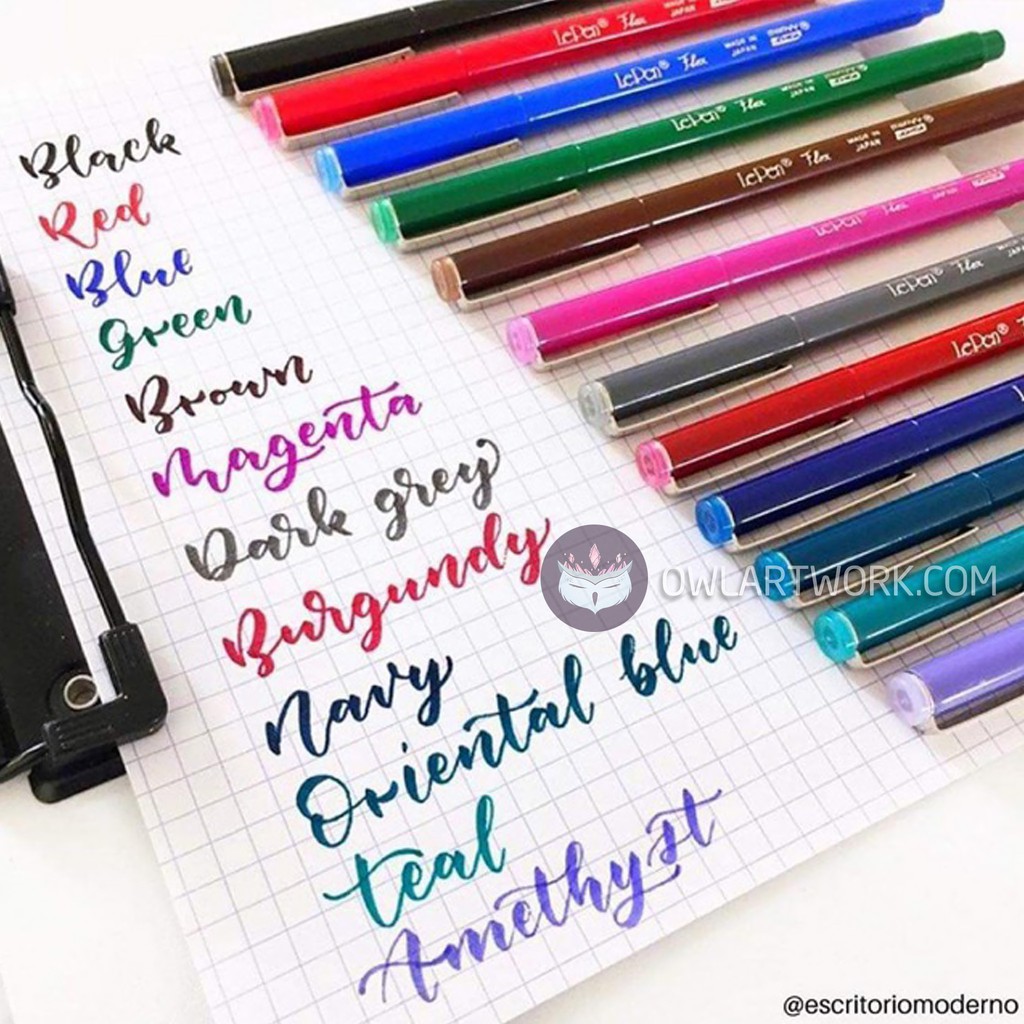 Black
Red
Blue
Green
Brown
Magenta
Dark grey
Burgundy
Navy
Oriental blue
Teal
Amethyst
LePen® Flex JAPAN
LePen® Flex MADE IN JAPAN
LePen® Flex MADE IN JAPAN
LePen® Flex MADE IN JAPAN
LePen® Flex MADE IN JAPAN
LePen® Flex MADE IN
LePen®
OWLARTWORK.COM
@escritoriomoderno